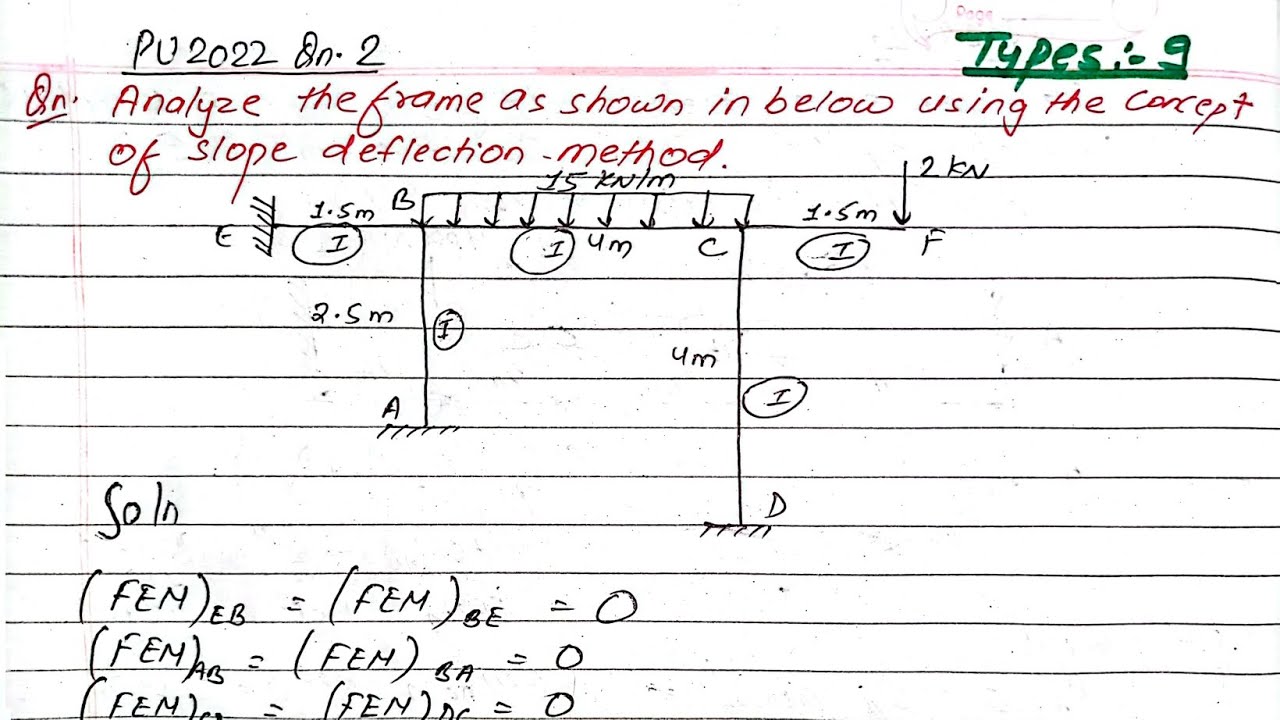 Page
PU 2022 Qn. 2
Types:- 9
Qn. Analyze the frame as shown in below using the concept
of slope deflection method.
15 KN/m
2 KN
1.5m
B
1.5m
E
I
I
4m
C
I
F
2.5m
I
4m
A
I
Soln
D
(FEM)EB = (FEM)BE = 0
(FEM)AB = (FEM)BA = 0
(FEM)CD = (FEM)DC = 0